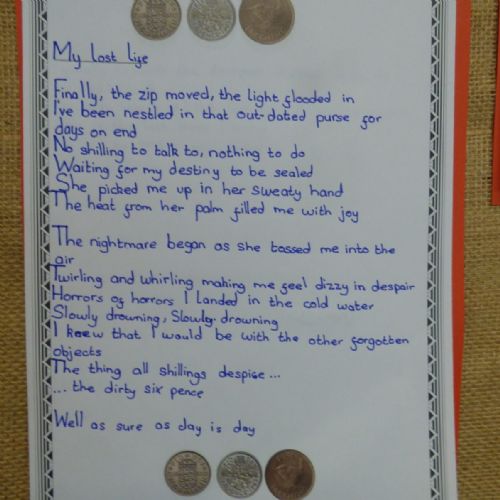 My lost life
Finally, the zip moved, the light flooded in
I've been nestled in that out-dated purse for
days on end
No shilling to talk to, nothing to do
Waiting for my destiny to be sealed
She picked me up in her sweaty hand
The heat from her palm filled me with joy
The nightmare began as she tossed me into the
air
Twirling and whirling making me feel dizzy in despair
Horrors of horrors I landed in the cold water
Slowly drowning, Slowly drowning
I knew that I would be with the other forgotten
objects
The thing all shillings despise...
... the dirty six pence
Well as sure as day is day